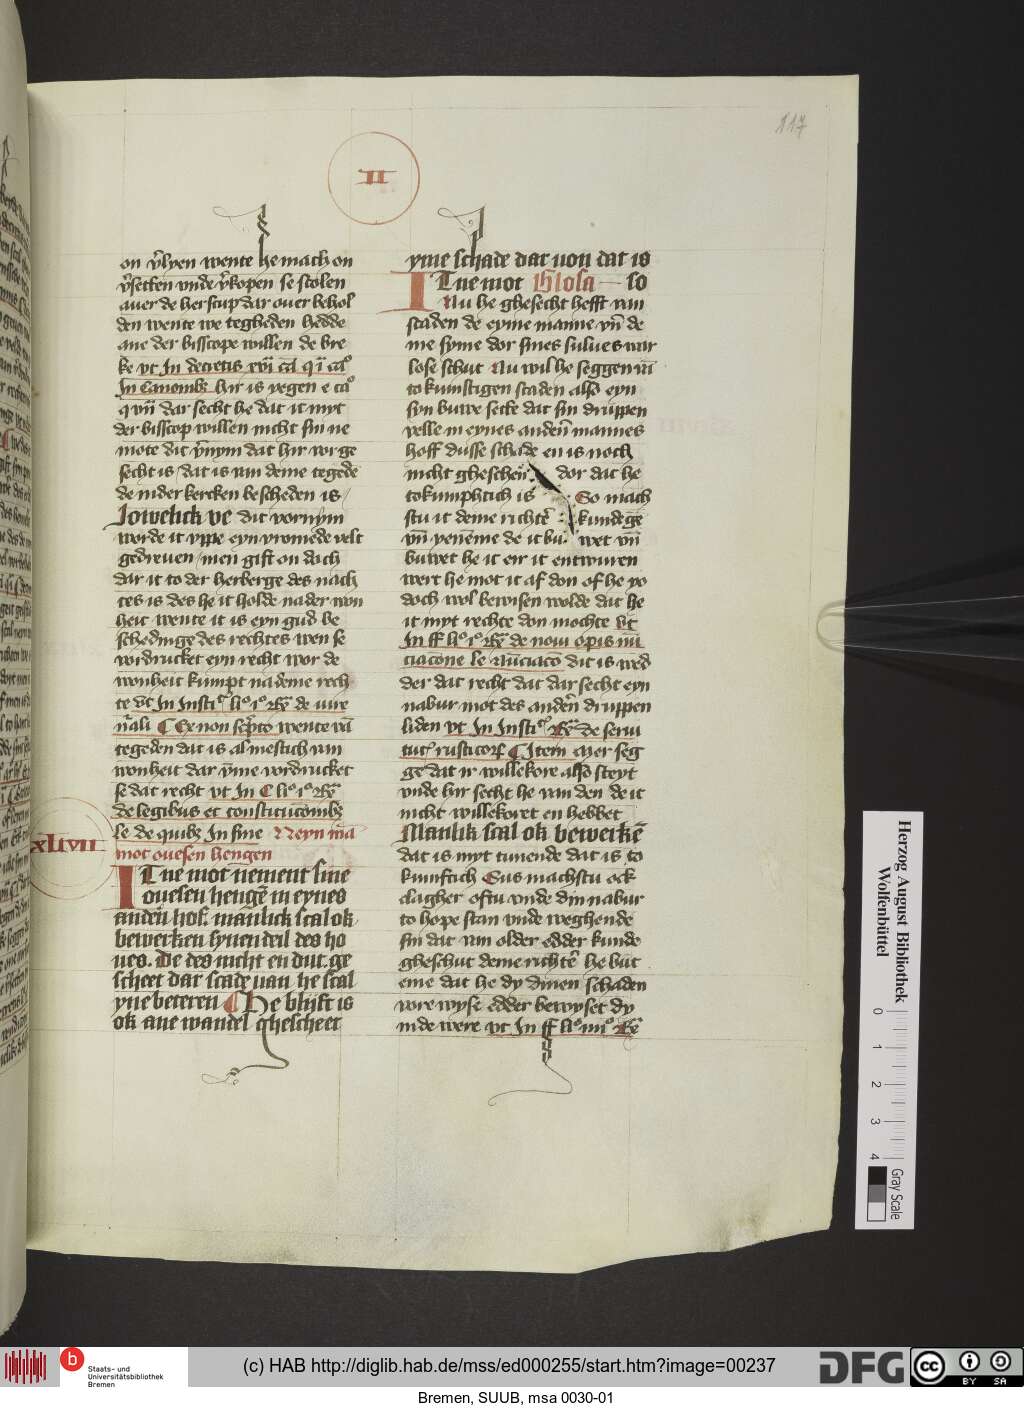 117
II
on v̄lyen wente he mach on
v̄setten vnde v̄kopen se scolen
auer de herscup dar ouer behol
den wente we tegheden hedde
ane der bisscope willen de bre
ke vt In decretis xvi cā q i cā
In Canonibꝫ hir is yegen e cā
q vii dar secht he dat it myt
der bisscop willen nicht sin ne
mote dit v̄nym dat hir vor ge
secht is dat is van deme tegede
de in der kercken bescheden is
Iowelick ve dit vornym
worde it yppe eyn vromede velt
gedreuen men gift on doch
dar it to der herberge des nach
tes is des he it holde na der won
heit wente it is eyn gud be
schedinge des rechtes wen se
vordrucket eyn recht wor de
wonheit kumpt na deme rech
te vt In Insti li i Rꝫ de iure
nāli Ex non scpto wente vā
tegeden dat is almestich van
wonheit dar v̄me vordrucket
se dat recht vt In C li i Rꝫ
de legibus et constitucionibꝫ
le de quibꝫ In fine Neyn mā
xlvii
mot ouesen hengen
It ne mot nement sine
ouesen hengē in eynes
anderī hof. manlick scal ok
bewerken synen deil des ho
ues. De des nicht en dut. ge
scheet dar scade uan he scal
yne beteren He blyft is
ok ane wandel ghescheet
yme schade dat uon dat is
It ne mot Glosa so
Nu he ghesecht hefft van
scaden de eyme manne vn̄ de
me syme dor sines sulues war
lose schut Nu wil he seggen vā
to kumstigen scaden also eyn
syn buwe secke dat sin druppen
velle in eynes anderī mannes
hoff dusse schade en is noch
nicht gheschen dor dat he
tokumphtich is So mach
stu it deme richtē kundegē
vn̄ yenēme de it bu wet vn̄
buwet he it eir it entwuren
wert he mot it af don of he yo
doch wol bewisen wolde dat he
it myt rechte don mochte vt
In ff li i Rꝫ de noui opis nū
ciacōne le Nūciacō dit is wed
der dat recht dat dar secht eyn
nabur mot des anderī druppen
liden vt In Insti Rꝫ de serui
tut rusticoꝝ Item Mer seg
ge dat ir willekore also steyt
vnde hir secht he van den de it
nicht willekoret en hebbet
Manlik scal ok bewerkē
dat is myt tunende dat is to
kumftich Sus machstu ock
clagher oftu vnde din nabur
to hope stan vnde weghende
sin dat van older edder kinde
gheschut deme richtē he but
eme dat he dy dinen schaden
vore wyse edder bewyset dy
in de were vt In ff li iiii Rꝫ
Herzog August Bibliothek
Wolfenbüttel
0 1 2 3 4
Gray Scale
b
Staats- und
Universitätsbibliothek
Bremen
(c) HAB http://diglib.hab.de/mss/ed000255/start.htm?image=00237
DFG
cc
BY SA
Bremen, SUUB, msa 0030-01